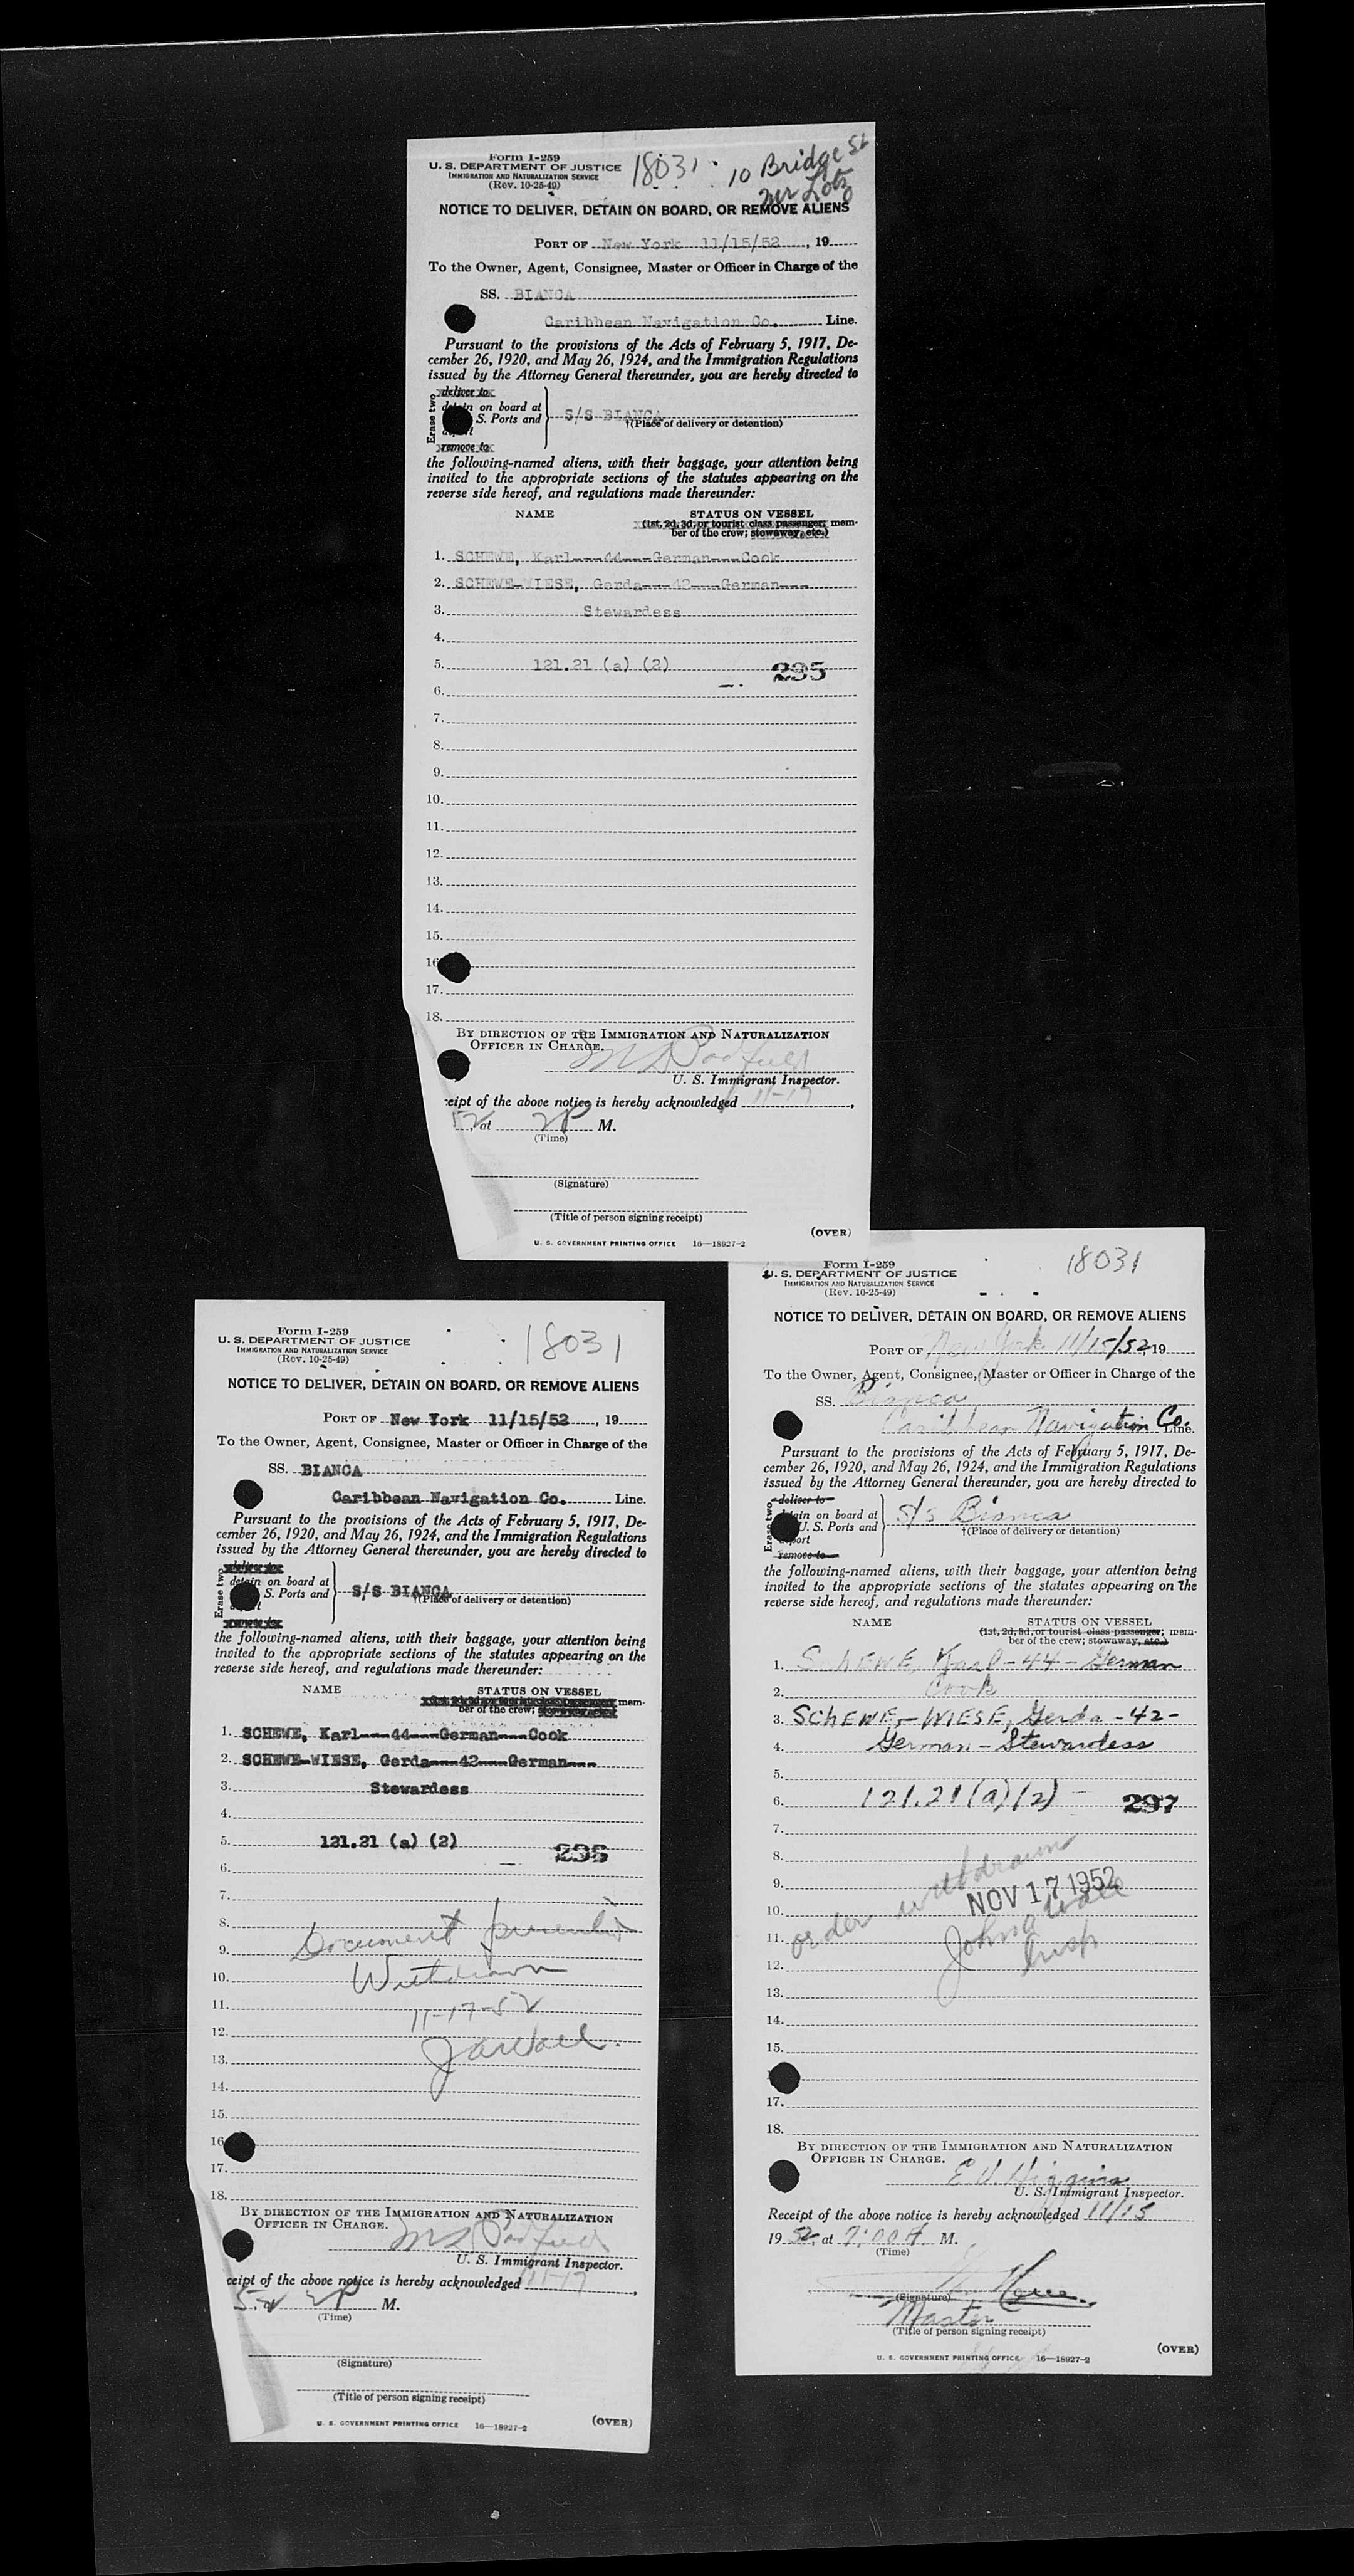 Form I-259
U. S. DEPARTMENT OF JUSTICE
IMMIGRATION AND NATURALIZATION SERVICE
(Rev. 10-25-49)
18031
10 Bridge St
Mr Lotz
NOTICE TO DELIVER, DETAIN ON BOARD, OR REMOVE ALIENS
PORT OF New York 11/15/52, 19
To the Owner, Agent, Consignee, Master or Officer in Charge of the
SS. BIANCA
Caribbean Navigation Co. Line.
Pursuant to the provisions of the Acts of February 5, 1917, De-
cember 26, 1920, and May 26, 1924, and the Immigration Regulations
issued by the Attorney General thereunder, you are hereby directed to
Erase two
deliver to
detain on board at
S. Ports and
remove to
S/S BIANCA
†(Place of delivery or detention)
the following-named aliens, with their baggage, your attention being
invited to the appropriate sections of the statutes appearing on the
reverse side hereof, and regulations made thereunder:
NAME STATUS ON VESSEL
(1st, 2d, 3d, or tourist class passenger; mem-
ber of the crew; stowaway, etc.)
1. SCHEWE, Karl---44---German---Cook
2. SCHEWE-WIESE, Gerda---42---German---
3. Stewardess
4.
5. 121.21 (a) (2) 295
6.
7.
8.
9.
10.
11.
12.
13.
14.
15.
16
17.
18.
BY DIRECTION OF THE IMMIGRATION AND NATURALIZATION
OFFICER IN CHARGE.
U. S. Immigrant Inspector.
eipt of the above notice is hereby acknowledged 11-17,
52, at 2P M.
(Time)
(Signature)
(Title of person signing receipt)
(OVER)
U. S. GOVERNMENT PRINTING OFFICE 16—18927-2
Form I-259
U. S. DEPARTMENT OF JUSTICE
IMMIGRATION AND NATURALIZATION SERVICE
(Rev. 10-25-49)
18031
NOTICE TO DELIVER, DETAIN ON BOARD, OR REMOVE ALIENS
PORT OF New York 11/15/52, 19
To the Owner, Agent, Consignee, Master or Officer in Charge of the
SS. BIANCA
Caribbean Navigation Co. Line.
Pursuant to the provisions of the Acts of February 5, 1917, De-
cember 26, 1920, and May 26, 1924, and the Immigration Regulations
issued by the Attorney General thereunder, you are hereby directed to
Erase two
detain on board at
S. Ports and
S/S BIANCA
†(Place of delivery or detention)
the following-named aliens, with their baggage, your attention being
invited to the appropriate sections of the statutes appearing on the
reverse side hereof, and regulations made thereunder:
NAME STATUS ON VESSEL
mem-
ber of the crew;
1. SCHEWE, Karl---44---German---Cook
2. SCHEWE-WIESE, Gerda---42---German---
3. Stewardess
4.
5. 121.21 (a) (2)
6.
7.
8. Document
9.
10. Withdrawn
11. 11-17-52
12.
13.
14.
15.
16
17.
18.
BY DIRECTION OF THE IMMIGRATION AND NATURALIZATION
OFFICER IN CHARGE.
U. S. Immigrant Inspector.
ceipt of the above notice is hereby acknowledged 11-17,
52 2P M.
(Time)
(Signature)
(Title of person signing receipt)
(OVER)
U. S. GOVERNMENT PRINTING OFFICE 16—18927-2
Form I-259
U. S. DEPARTMENT OF JUSTICE
IMMIGRATION AND NATURALIZATION SERVICE
(Rev. 10-25-49)
18031
NOTICE TO DELIVER, DETAIN ON BOARD, OR REMOVE ALIENS
PORT OF New York 11/15/52, 19
To the Owner, Agent, Consignee, Master or Officer in Charge of the
SS. Bianca
Caribbean Navigation Co. Line.
Pursuant to the provisions of the Acts of February 5, 1917, De-
cember 26, 1920, and May 26, 1924, and the Immigration Regulations
issued by the Attorney General thereunder, you are hereby directed to
Erase two
deliver to
detain on board at
U. S. Ports and
deport
remove to
S/S Bianca
†(Place of delivery or detention)
the following-named aliens, with their baggage, your attention being
invited to the appropriate sections of the statutes appearing on the
reverse side hereof, and regulations made thereunder:
NAME STATUS ON VESSEL
(1st, 2d, 3d, or tourist class passenger; mem-
ber of the crew; stowaway, etc.)
1. SCHEWE, Karl-44-German
2. Cook
3. SCHEWE-WIESE, Gerda-42-
4. German-Stewardess
5.
6. 121.21(a)(2)- 297
7.
8.
9.
10.
11. order withdrawn
NOV 17 1952
12. Insp
13.
14.
15.
17.
18.
BY DIRECTION OF THE IMMIGRATION AND NATURALIZATION
OFFICER IN CHARGE.
E. V. Higgins
U. S. Immigrant Inspector.
Receipt of the above notice is hereby acknowledged 11/15
19 52, at 7:00 A M.
(Time)
(Signature)
Master
(Title of person signing receipt)
(OVER)
U. S. GOVERNMENT PRINTING OFFICE 16—18927-2